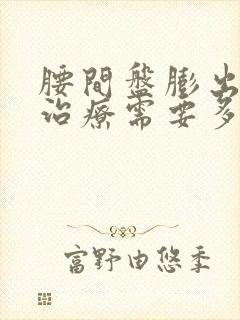 腰間盤膨出
治療需要多
富野由悠季